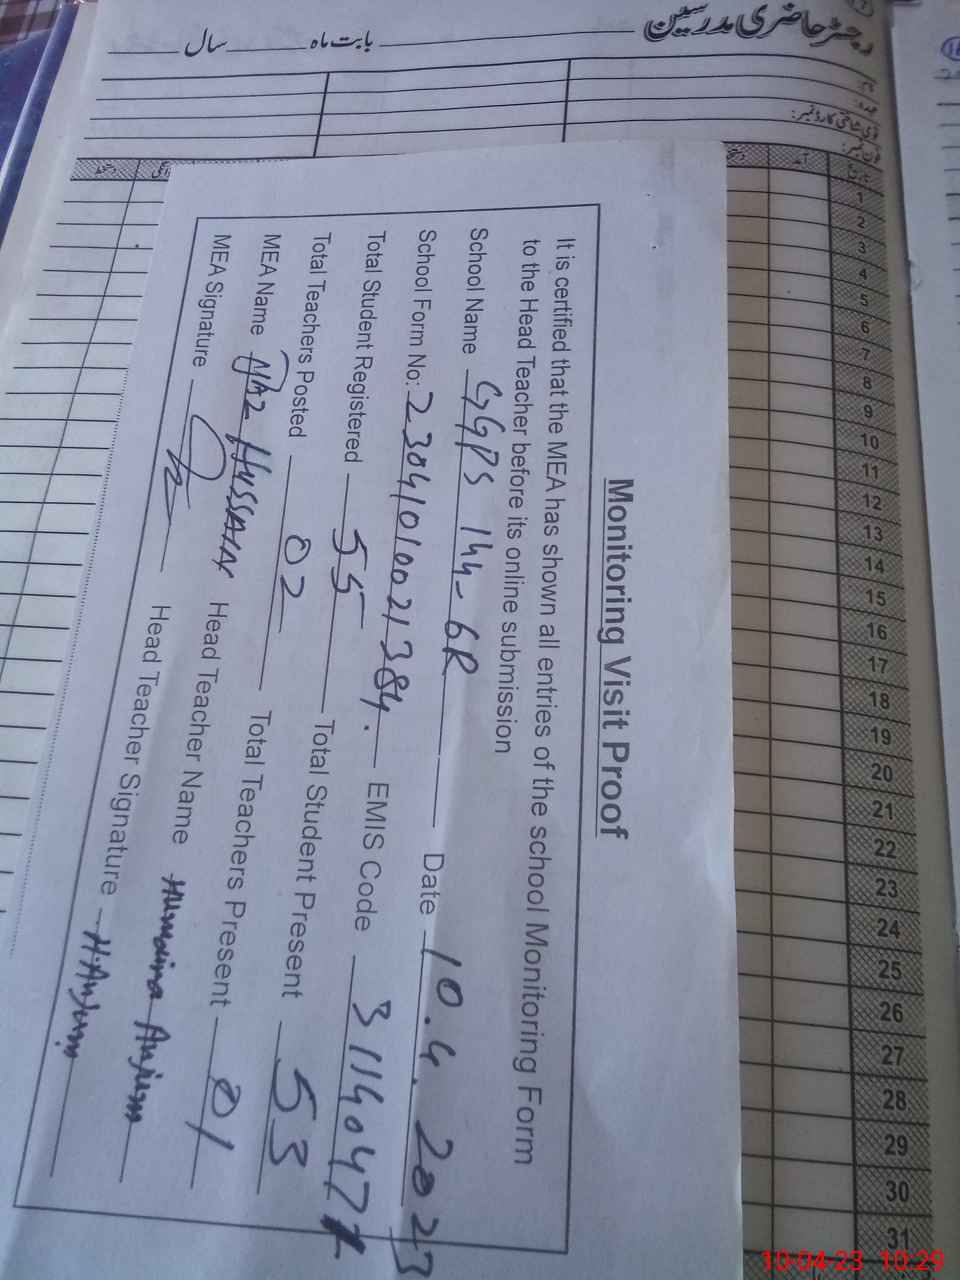 رجسٹر حاضری مدرسین بابت ماہ سال
نام
عہدہ:
قومی شناختی کارڈ نمبر:
فون نمبر:
تاریخ آمد
1
2
3
4
5
6
7
8
9
10
11
12
13
14
15
16
17
18
19
20
21
22
23
24
25
26
27
28
29
30
31
Monitoring Visit Proof
It is certified that the MEA has shown all entries of the school Monitoring Form
to the Head Teacher before its online submission
School Name GGPS 144-6R Date 10.4.2023
School Form No: 23041010021384. EMIS Code 31140477
Total Student Registered 55 Total Student Present 53
Total Teachers Posted 02 Total Teachers Present 01
MEA Name HUSSAIN Head Teacher Name Humaima Anjum
MEA Signature Head Teacher Signature H.Anjum
10-04-23 10:29